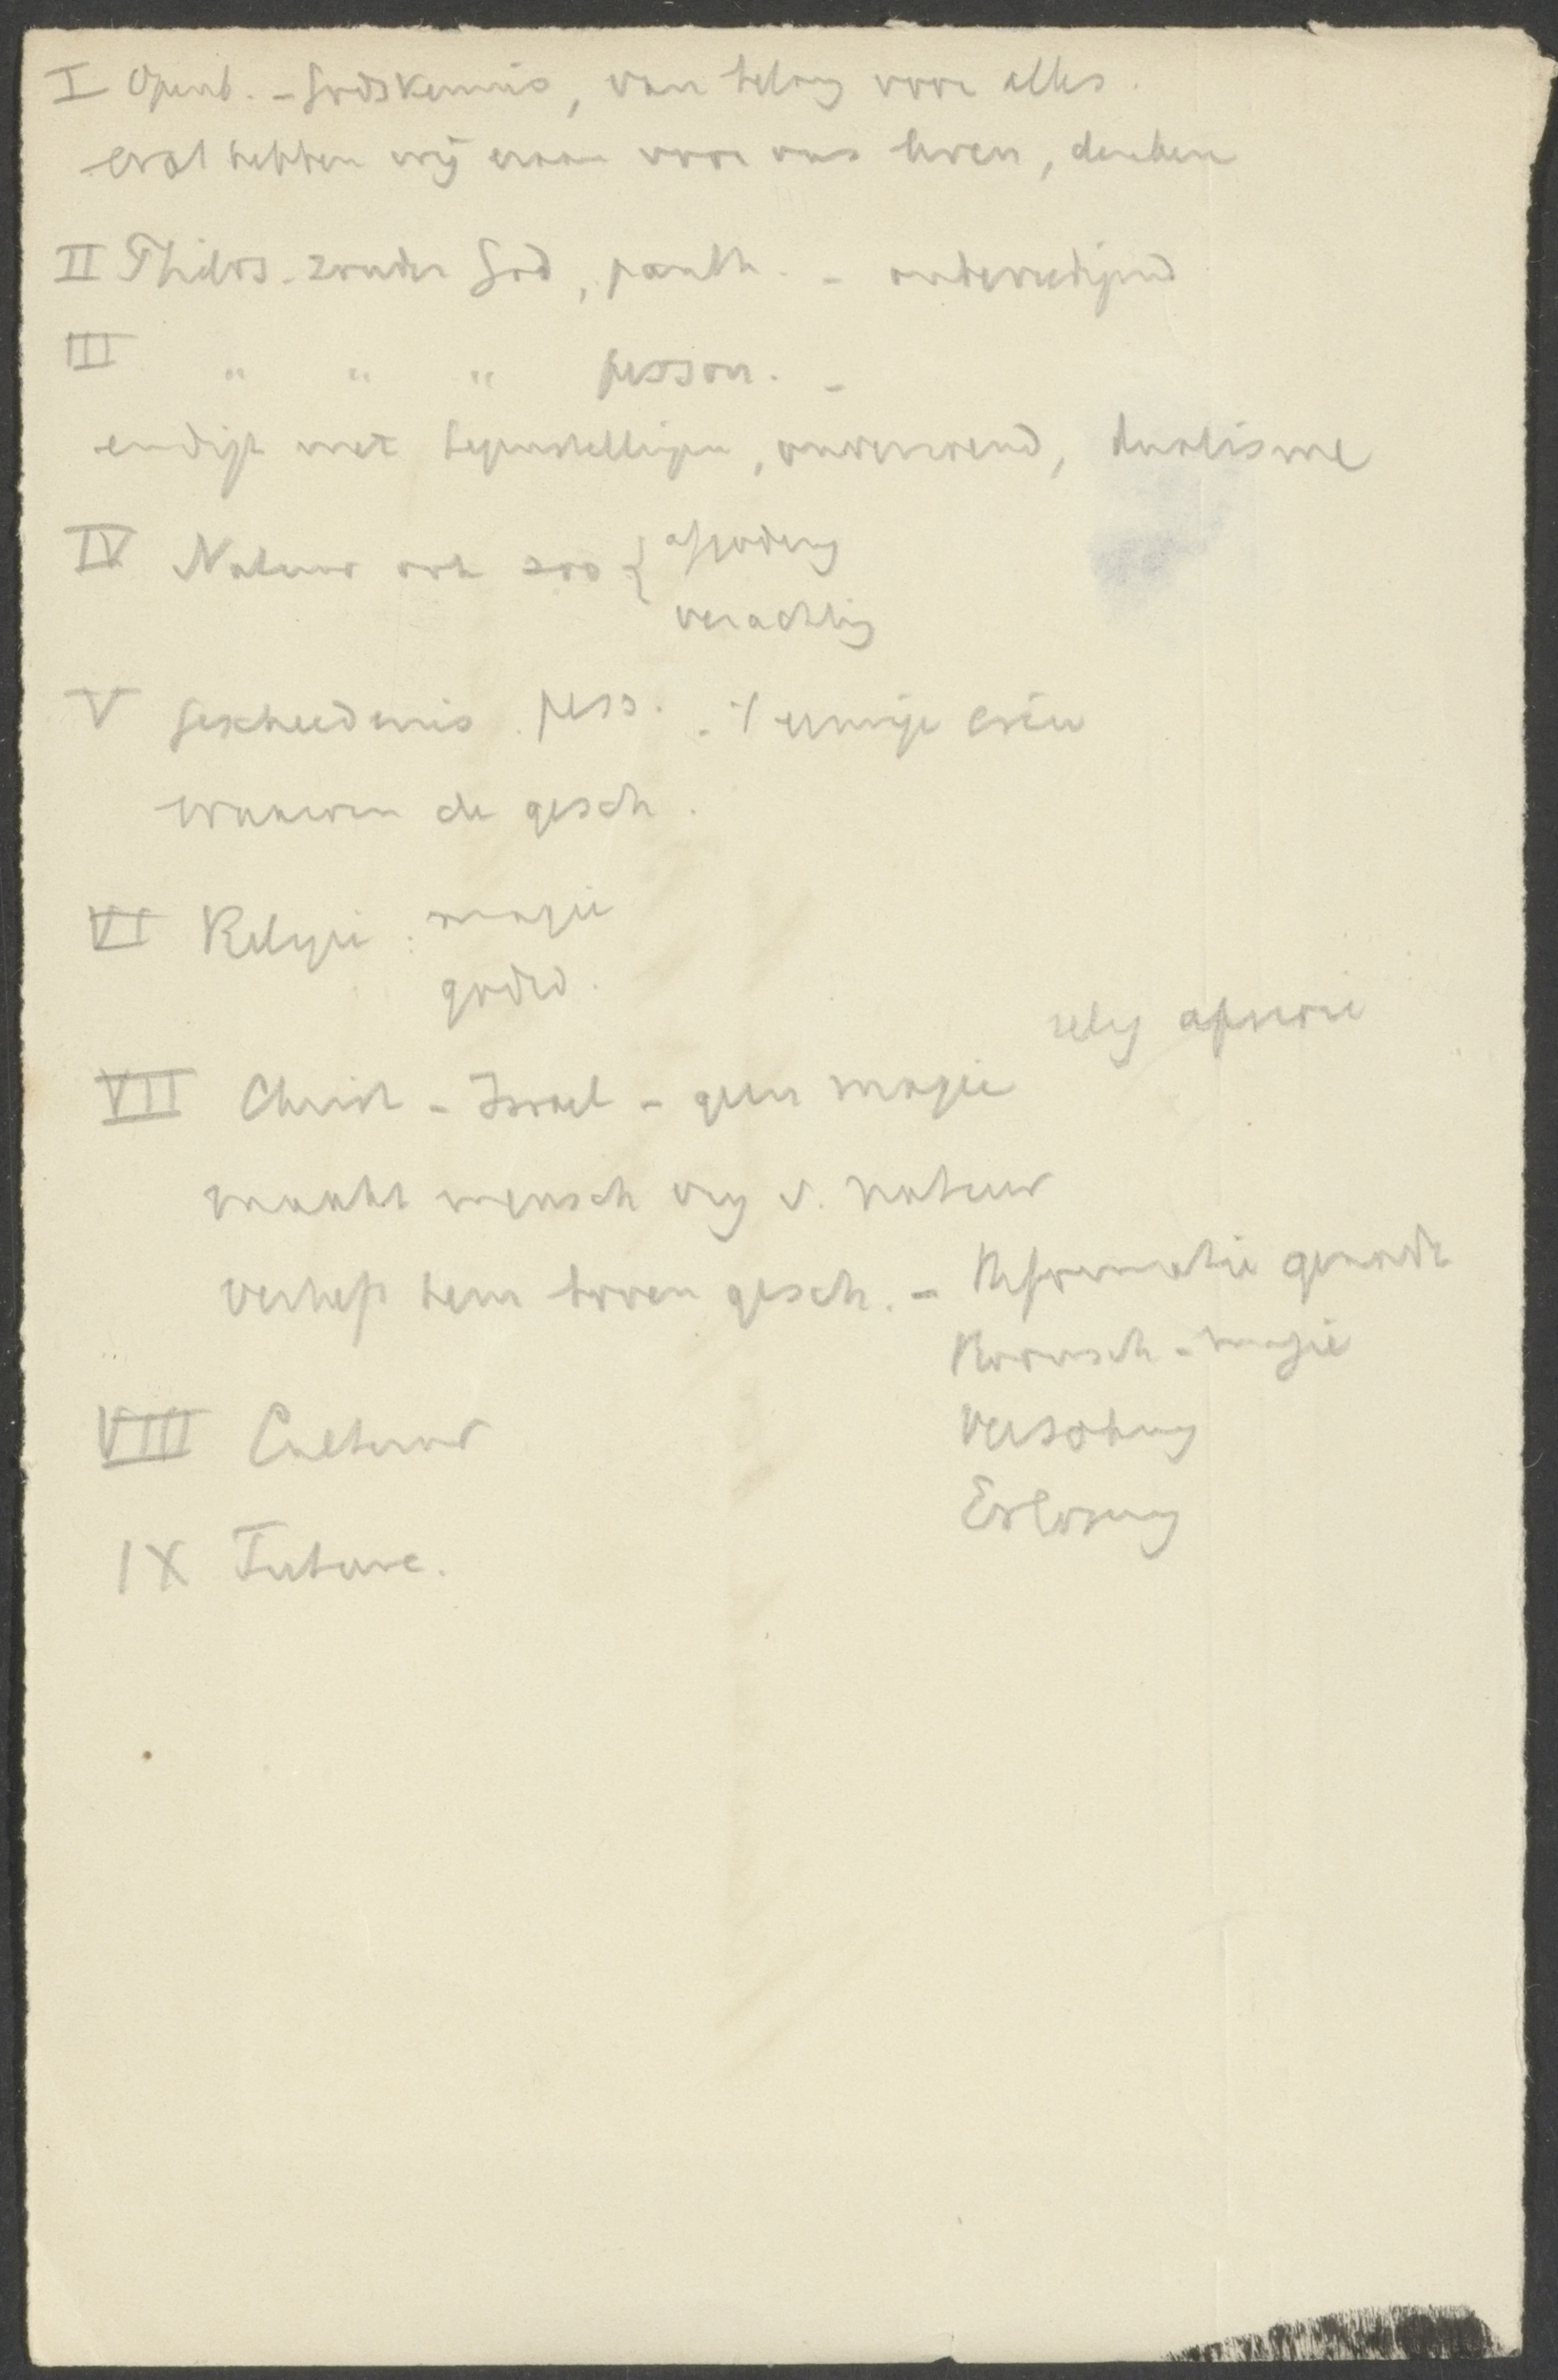 I Openb. - Godskennis, van belang voor alles.
wat hebben wij eraan voor ons leven, denken
II Philos. zonder God, panth. - onbevredigend
III " " " person. -
eindigt met tegenstellingen, onverzoend, dualisme
IV Natuur ook zoo { afgoding
verachting
V Geschiedenis pess. - 't eenige één
waarom de gesch.
VI Religie : magie
godsd.
relig apriori
VII Christ - Israel - geen magie
maakt mensch vrij v. natuur
verheft hem boven gesch. - Reformatie genade
Roomsch - magie
Versöhnung
Erlösung
VIII Cultuur
IX Future.